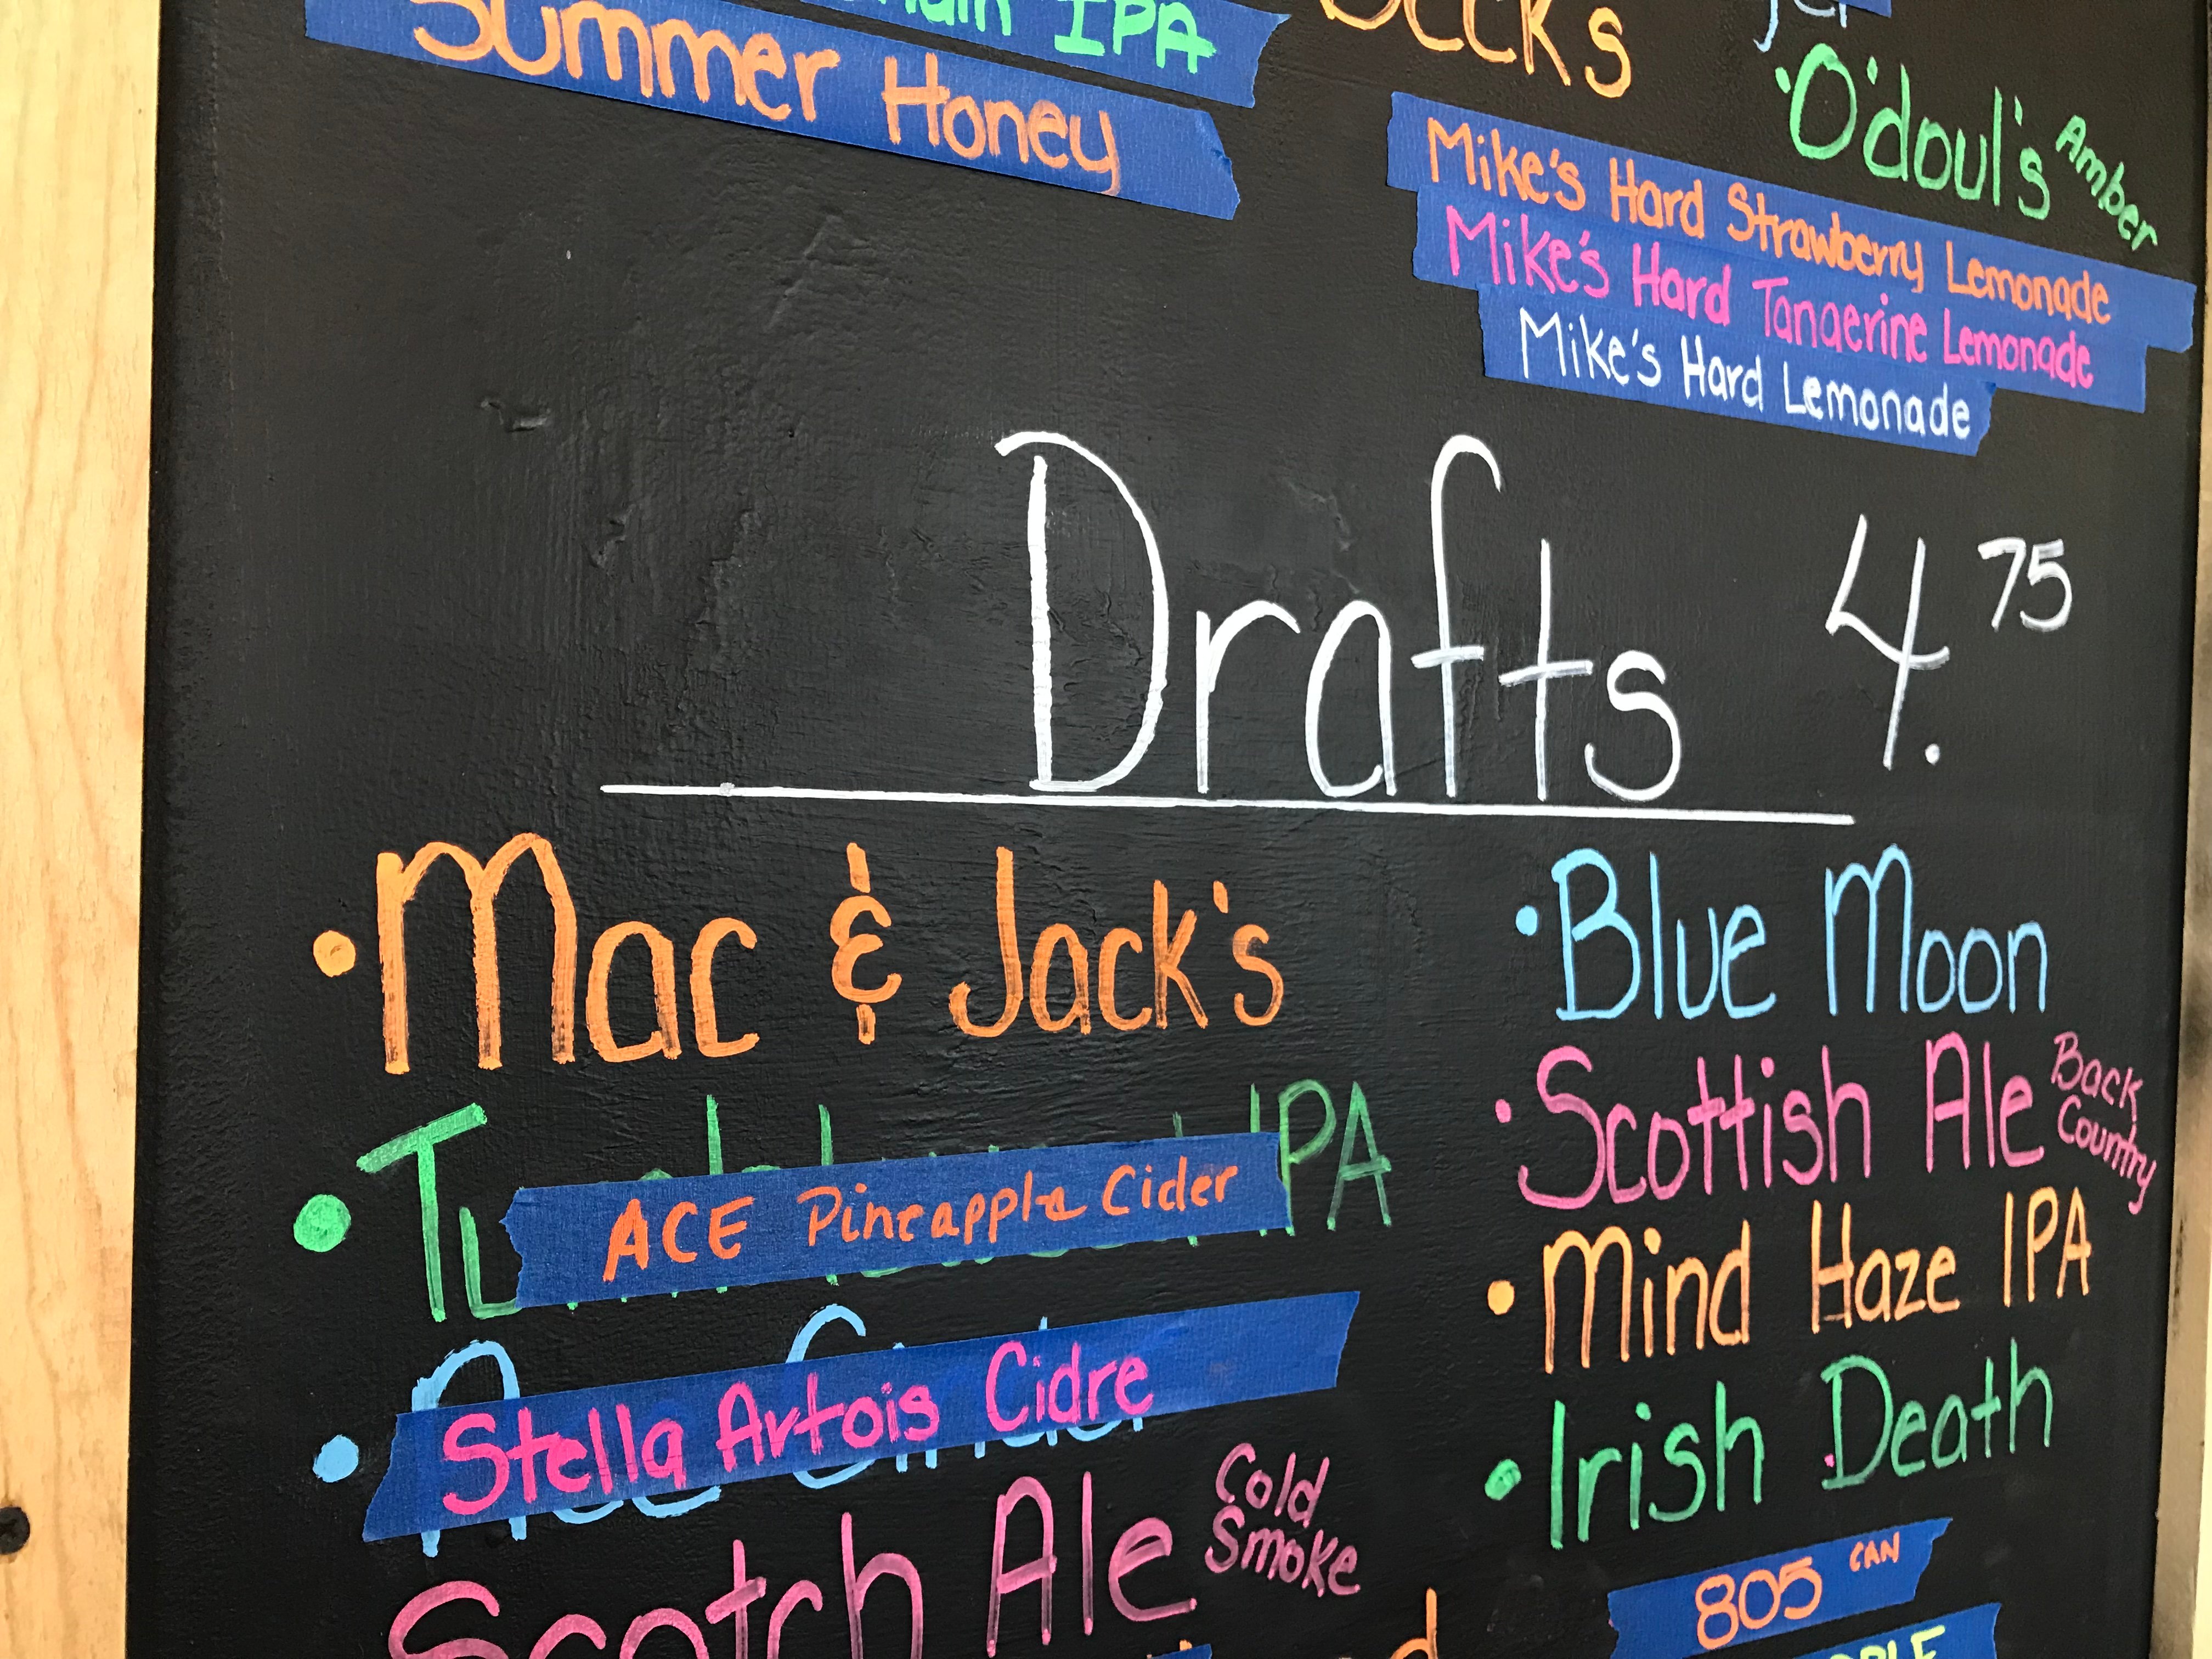 IPA
Summer Honey
O'doul's Amber
Mike's Hard Strawberry Lemonade
Mike's Hard Tangerine Lemonade
Mike's Hard Lemonade
Drafts 4.75
• Mac & Jack's
• IPA
ACE Pineapple Cider
• Stella Artois Cidre
Scotch Ale Cold Smoke
• Blue Moon
• Scottish Ale Back Country
• Mind Haze IPA
• Irish Death
805 CAN